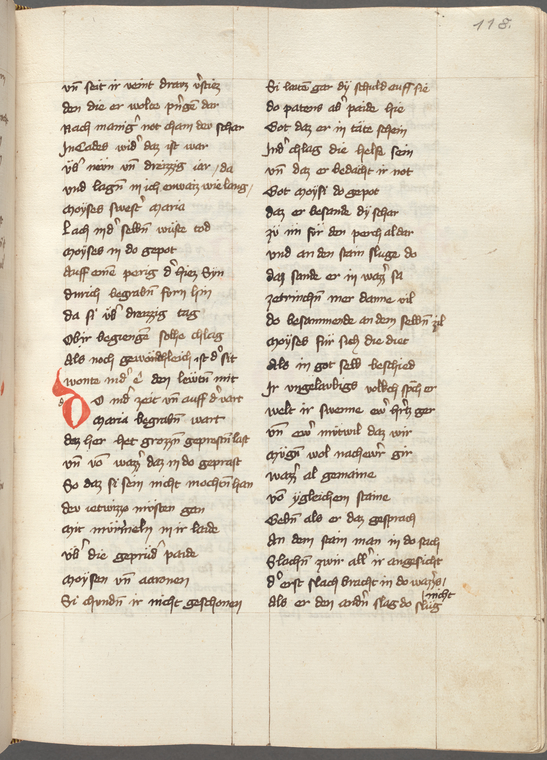 118.
vn̄ seit ir veint dranz v̓stiez
den die er wolte pn̓gē der
Nach manig̓ not cham dew schar
In Cades wid̓ daz ist war
vb̓ newn vn̄ dreizzig iar / da
vnd lagn̄ in ich enwaiz wie lang /
Moyses swest̓ Maria
Lach in d̓ selbn̄ wuste tod
Moyses in do gepot
Auff einē perig d̓ hiez Syn
Durich begrabn̄ fūrn hin
da si vb̓ dreizzig tag
Ob ir begiengē solhe chlag
Als noch gewōndleich ist d̓ sit
wonte in d̓ ê den lewtn̄ mit
Do in d̓ zeit vn̄ auff d̓ vart
Maria begrabn̄ wart
daz her het grozzn̄ geprestn̄ last
vn̄ vō wazz̓ daz in do geprast
So daz si sein nicht mochtn̄ han
dew ietwizze mūsten gan
Mit mūrmeln in ir laide
vb̓ die geprūd̓ paide
Moysen vn̄ Aaronen
Si chundn̄ ir nicht geschonen
Si gar dy schuld auff sie
do patens ab̓ paide hie
Got daz er in tāte schein
Ind̓ chlag die helfe sein
vn̄ daz er bedacht ir not
Got Moysi do gepot
daz er besande dy schar
zū im für den perch aldar
vnd an den stain sluge do
daz sande er in wazz̓ sa
zetrinchn̄ mer danne vil
do besammende an dem selbn̄ zil
Moyses für sich die diet
Als in got selb beschied
Ir vngelaubigs volkch sprach er
welt ir swenne ew̓ h̓tz ger
vn̄ ew̓ mūtwil daz wir
Mūgn̄ wol nach ew̓ gir
wazz̓ al gemaine
vō ygleichem staine
Gebn̄ als er daz gesprach
An dem stain man in do sach
Slachn̄ zwir all̓ ir angesicht
d̓ erst slach bracht in do wazz̓s /
Als er den andn̄ slag do slūg / nicht